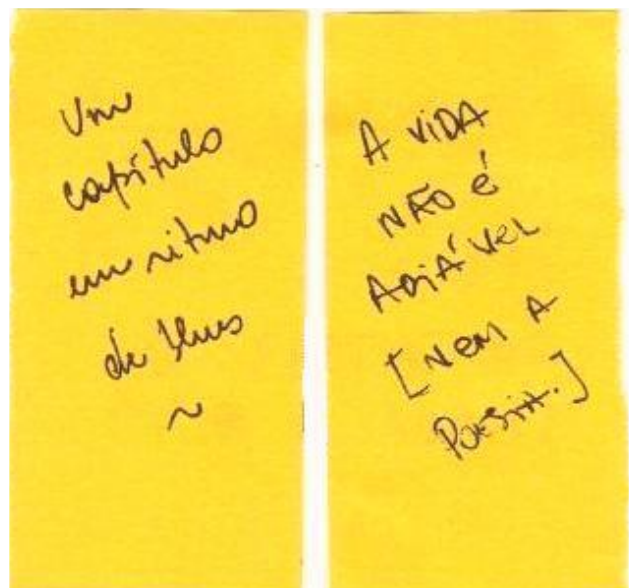 Um
capítulo
em ritmo
de blues
~
A VIDA
NÃO É
ADIÁVEL
[NEM A
POESIA.]